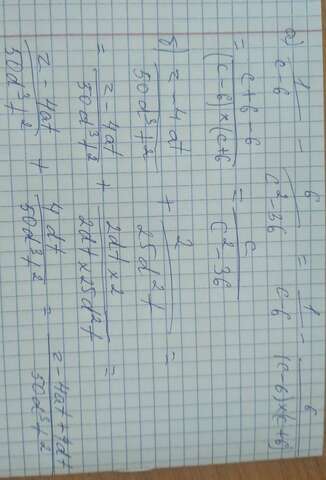 а) 1/(c-6) - 6/(c²-36) = 1/(c-6) - 6/((c-6)×(c+6))
= (c+6-6)/((c-6)×(c+6)) = c/(c²-36)
б) (z-4at)/(50d³t²) + 2/(25d²t) =
= (z-4at)/(50d³t²) + (2dt×2)/(2dt×25d²t) =
(z-4at)/(50d³t²) + (4dt)/(50d³t²) = (z-4at+4dt)/(50d³t²)